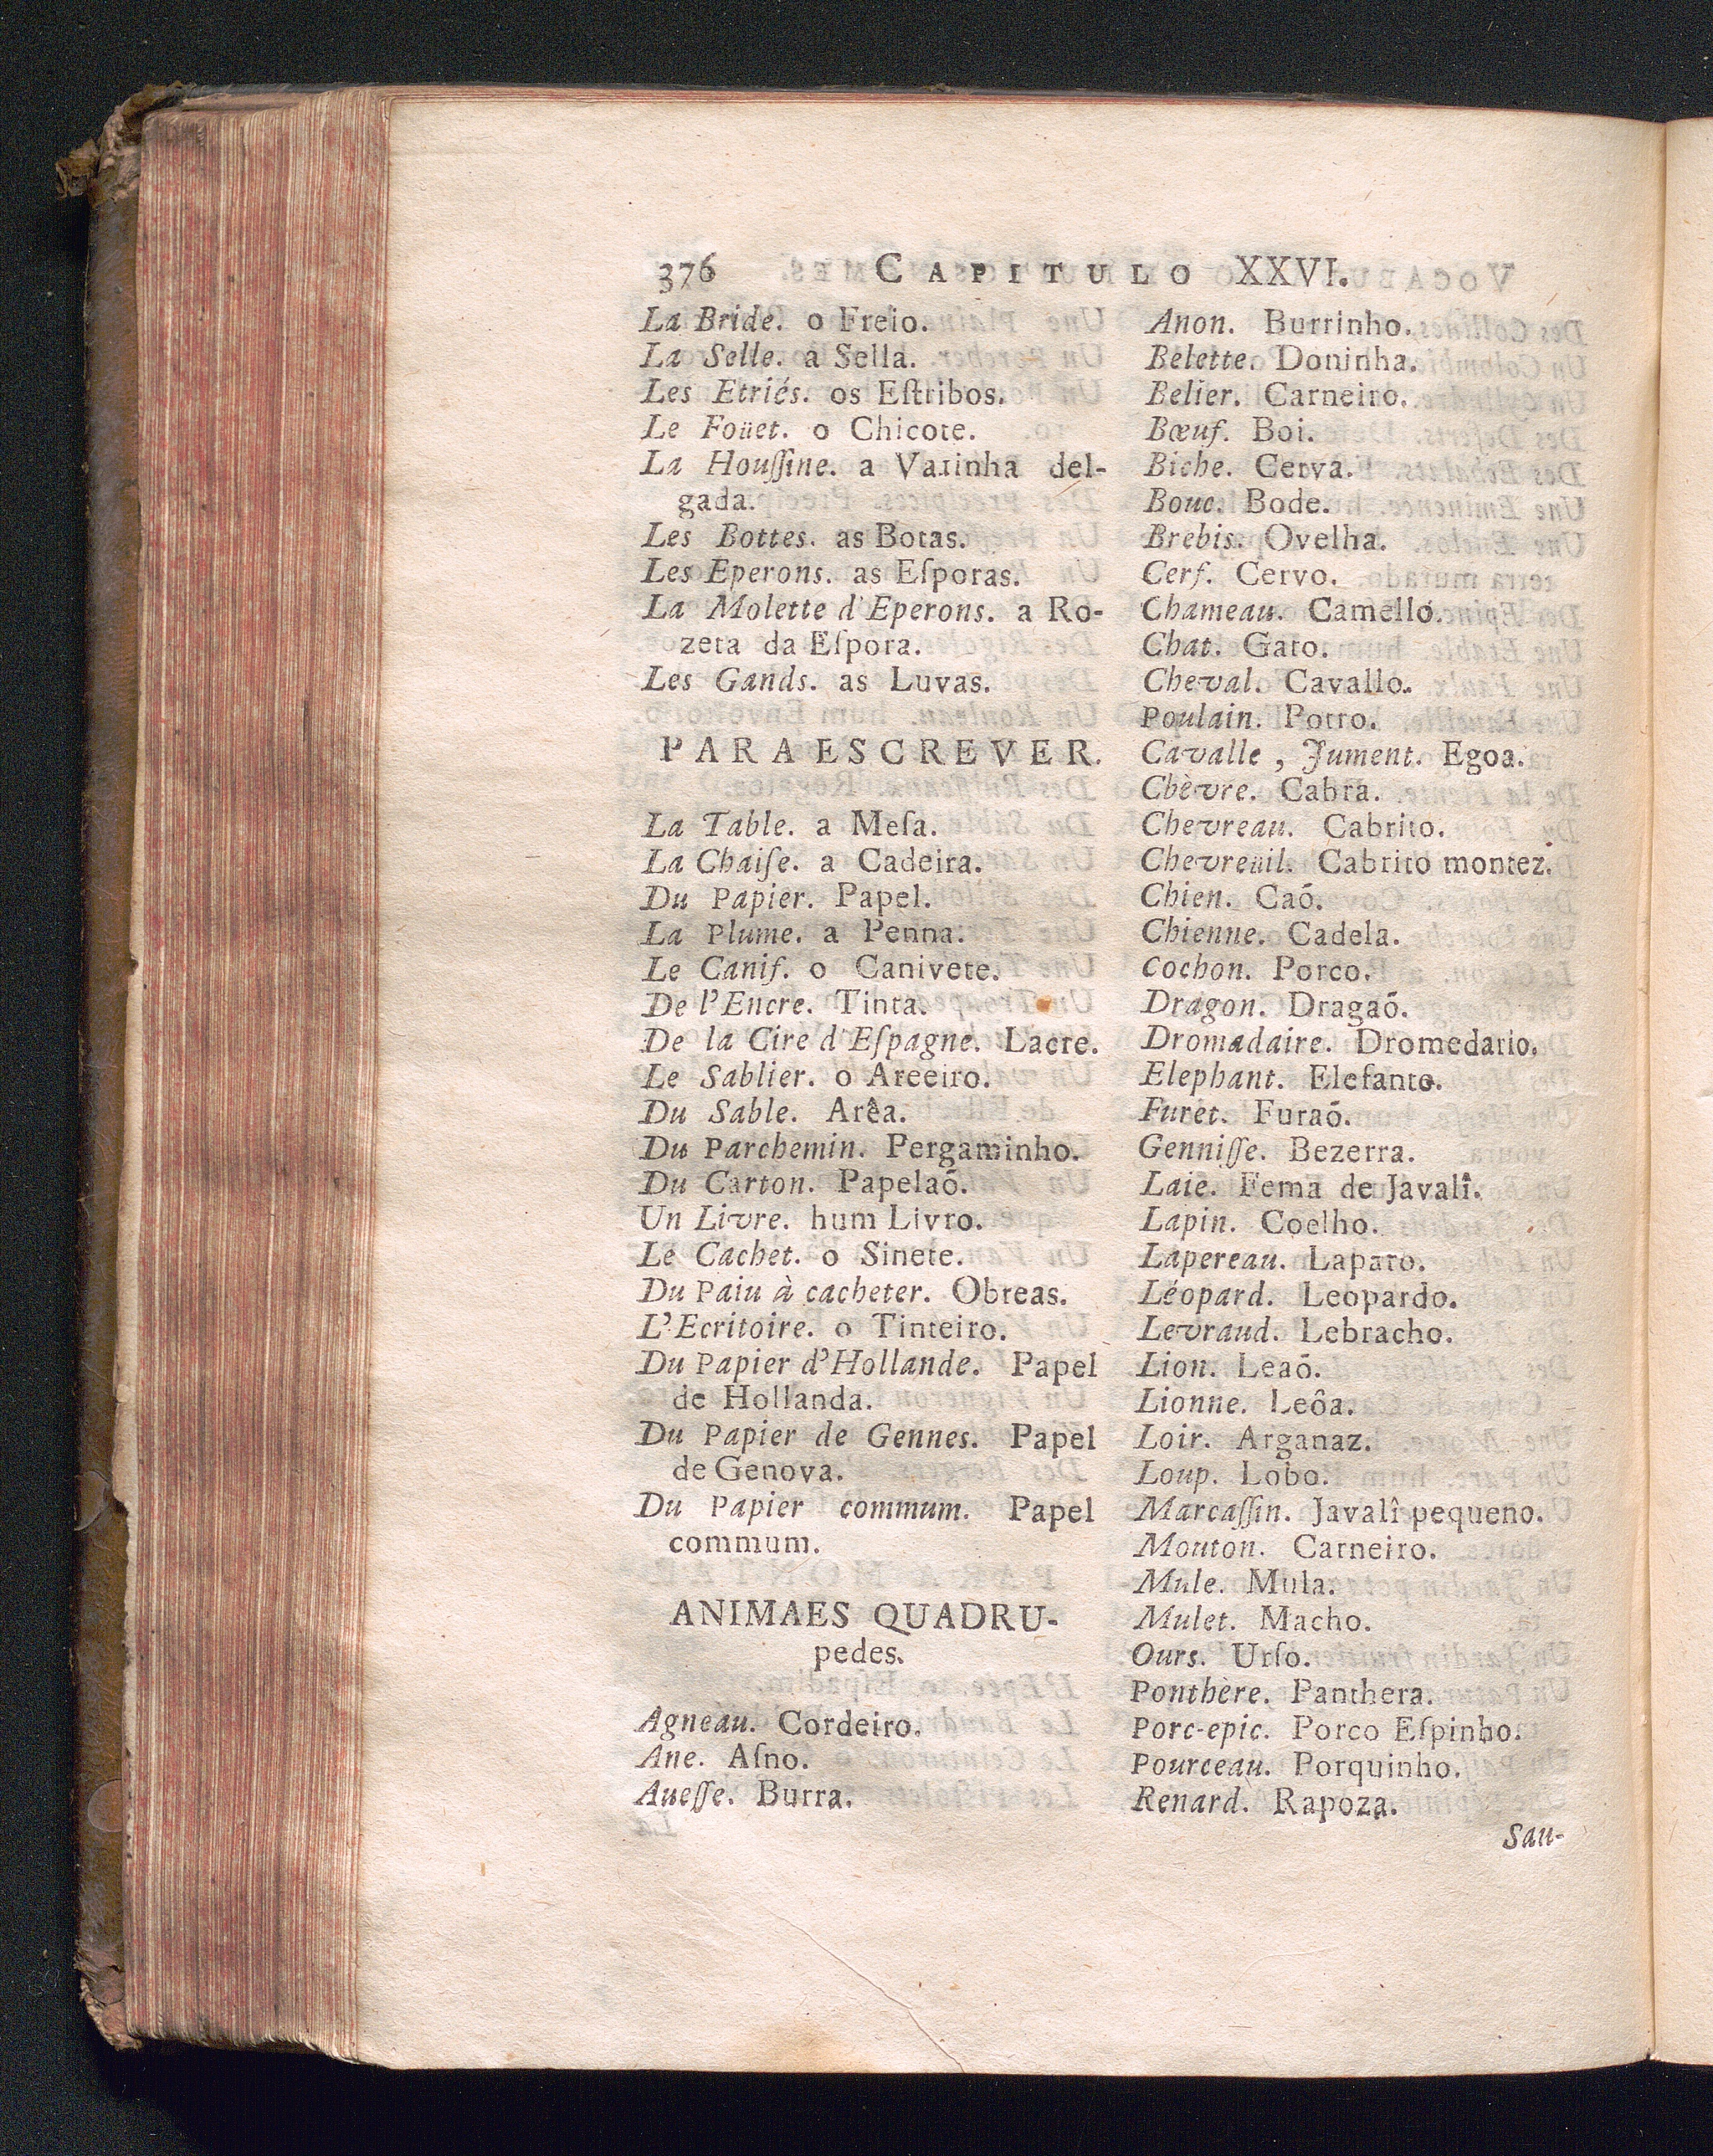 376 CAPITULO XXVI.
La Bride. o Freio.
La Selle. a Sella.
Les Etriés. os Eſtribos.
Le Foüet. o Chicote.
La Houſſine. a Varinha del-
gada.
Les Bottes. as Botas.
Les Eperons. as Eſporas.
La Molette d'Eperons. a Ro-
zeta da Eſpora.
Les Gands. as Luvas.
PARA ESCREVER.
La Table. a Meſa.
La Chaiſe. a Cadeira.
Du Papier. Papel.
La Plume. a Penna.
Le Canif. o Canivete.
De l'Encre. Tinta.
De la Cire d'Eſpagne. Lacre.
Le Sablier. o Areeiro.
Du Sable. Arêa.
Du Parchemin. Pergaminho.
Du Carton. Papelaõ.
Un Livre. hum Livro.
Le Cachet. o Sinete.
Du Paiu à cacheter. Obreas.
L'Ecritoire. o Tinteiro.
Du Papier d'Hollande. Papel
de Hollanda.
Du Papier de Gennes. Papel
de Genova.
Du Papier commum. Papel
commum.
ANIMAES QUADRU-
pedes.
Agneau. Cordeiro.
Ane. Aſno.
Aueſſe. Burra.
Anon. Burrinho.
Belette. Doninha.
Belier. Carneiro.
Bœuf. Boi.
Biche. Cerva.
Bouc. Bode.
Brebis. Ovelha.
Cerf. Cervo.
Chameau. Camello.
Chat. Gato.
Cheval. Cavallo.
Poulain. Potro.
Cavalle, Jument. Egoa.
Chèvre. Cabra.
Chevreau. Cabrito.
Chevreüil. Cabrito montez.
Chien. Caõ.
Chienne. Cadela.
Cochon. Porco.
Dragon. Dragaõ.
Dromadaire. Dromedario.
Elephant. Elefante.
Furet. Furaõ.
Genniſſe. Bezerra.
Laie. Fema de Javalî.
Lapin. Coelho.
Lapereau. Laparo.
Léopard. Leopardo.
Levraud. Lebracho.
Lion. Leaõ.
Lionne. Leôa.
Loir. Arganaz.
Loup. Lobo.
Marcaſſin. Javalî pequeno.
Mouton. Carneiro.
Mule. Mula.
Mulet. Macho.
Ours. Urſo.
Ponthère. Panthera.
Porc-epic. Porco Eſpinho.
Pourceau. Porquinho.
Renard. Rapoza.
Sau-